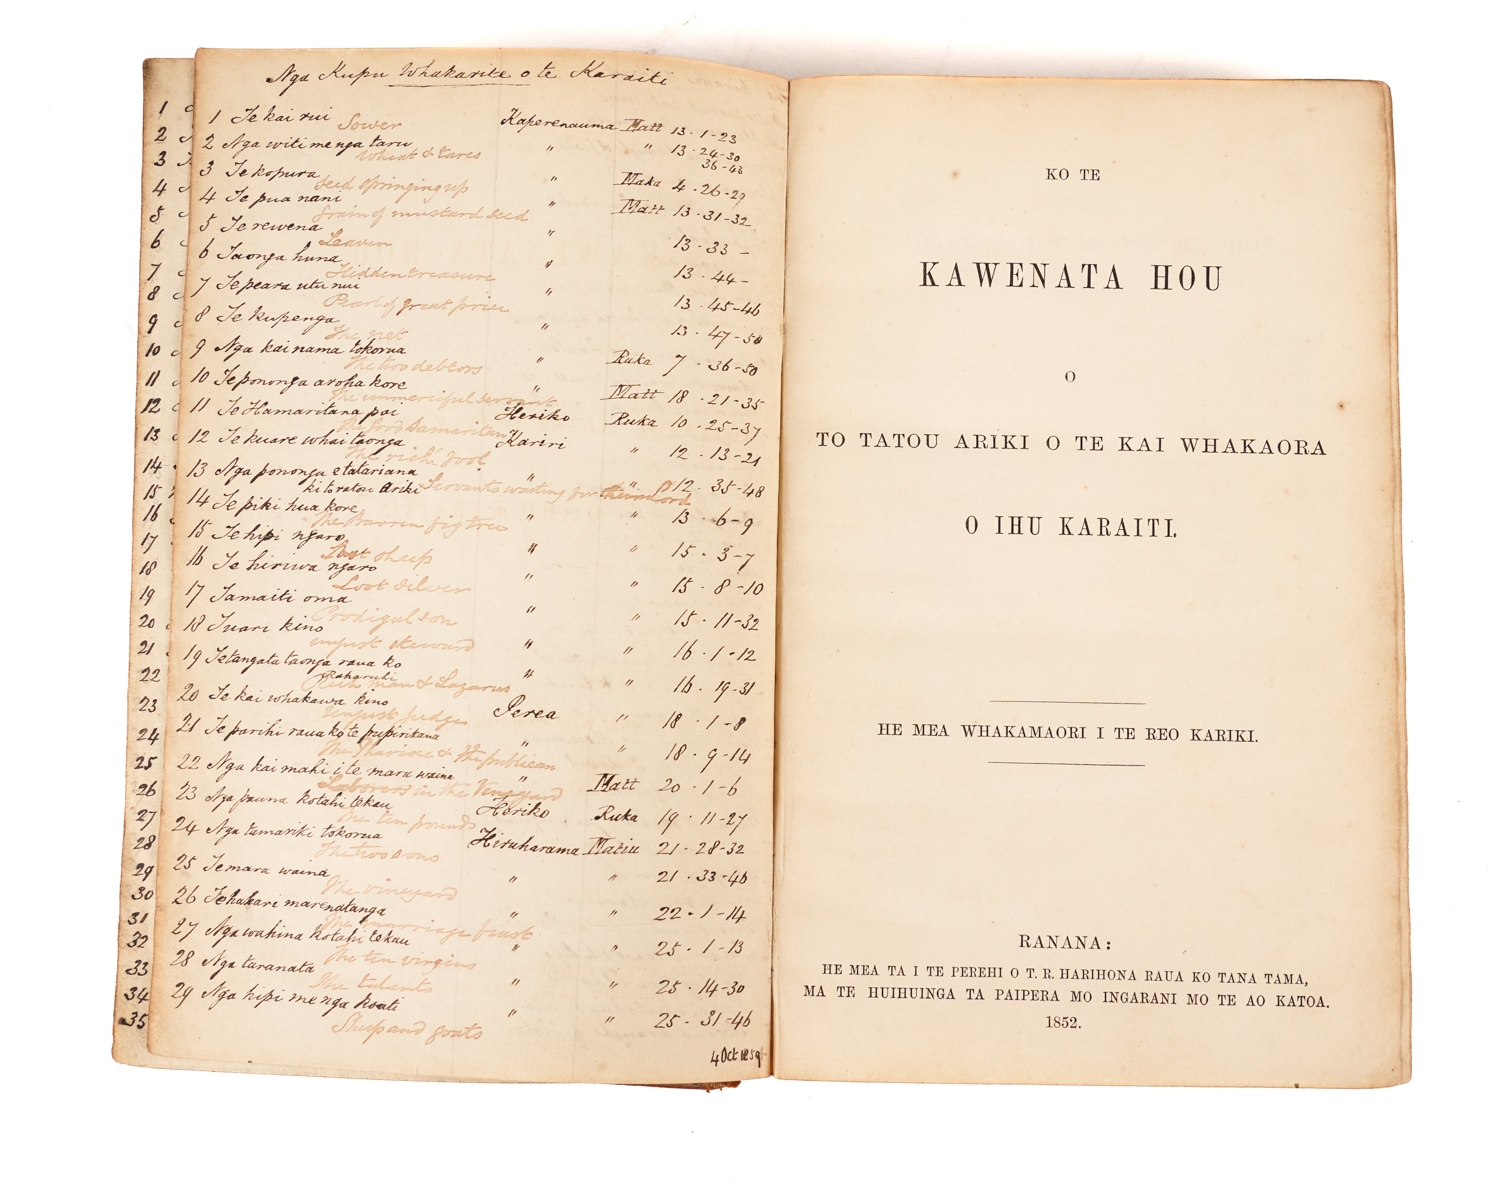 Nga Kupu Whakarite o te Karaiti
1 Te kai rui Sower Kaperenauma Matt 13 . 1-23
2 Nga witi me nga taru Wheat & tares " " 13 . 24-30
36-43
3 Te kopura Seed springing up " Maka 4 . 26-29
4 Te pua nani Grain of mustard seed " Matt 13 . 31-32
5 Te rewena Leaven " 13 . 33 -
6 Taonga huna Hidden treasure " 13 . 44 -
7 Te peara utu nui Pearl of great price " 13 . 45-46
8 Te kupenga The net " 13 . 47-50
9 Nga kai nama tokorua The two debtors " Ruka 7 . 36-50
10 Te pononga aroha kore The unmerciful servant " Matt 18 . 21-35
11 Te Hamaritana pai The Good Samaritan Heriko Ruka 10 . 25-37
12 Te kuare whai taonga The rich fool Kariri " 12 . 13-21
13 Nga pononga e tatariana
ki to ratou Ariki Servants waiting for their Lord " " 12 . 35-48
14 Te piki hua kore The Barren fig tree " " 13 . 6-9
15 Te hipi ngaro Lost sheep " " 15 . 3-7
16 Te hiriwa ngaro Lost silver " " 15 . 8-10
17 Tamaiti oma Prodigal son " " 15 . 11-32
18 Tuari kino unjust steward " " 16 . 1-12
19 Te tangata taonga raua ko
Raharuhi Rich man & Lazarus " " 16 . 19-31
20 Te kai whakawa kino Unjust judge Perea " 18 . 1-8
21 Te parihi raua ko te pupirikana The Pharisee & the publican " " 18 . 9-14
22 Nga kai mahi i te mara waina Laborers in the Vineyard " Matt 20 . 1-6
23 Nga pauna kotahi tekau The ten pounds Heriko Ruka 19 . 11-27
24 Nga tamariki tokorua The two sons Hiruharama Matiu 21 . 28-32
25 Te mara waina The vineyard " " 21 . 33-46
26 Te hakari marenatanga The marriage feast " " 22 . 1-14
27 Nga wahina kotahi tekau The ten virgins " " 25 . 1-13
28 Nga taranata The talents " " 25 . 14-30
29 Nga hipi me nga koati Sheep and goats " " 25 . 31-46
4 Oct 1859
1
2
3
4
5
6
7
8
9
10
11
12
13
14
15
16
17
18
19
20
21
22
23
24
25
26
27
28
29
30
31
32
33
34
35
KO TE
KAWENATA HOU
O
TO TATOU ARIKI O TE KAI WHAKAORA
O IHU KARAITI.
HE MEA WHAKAMAORI I TE REO KARIKI.
RANANA:
HE MEA TA I TE PEREHI O T. R. HARIHONA RAUA KO TANA TAMA,
MA TE HUIHUINGA TA PAIPERA MO INGARANI MO TE AO KATOA.
1852.